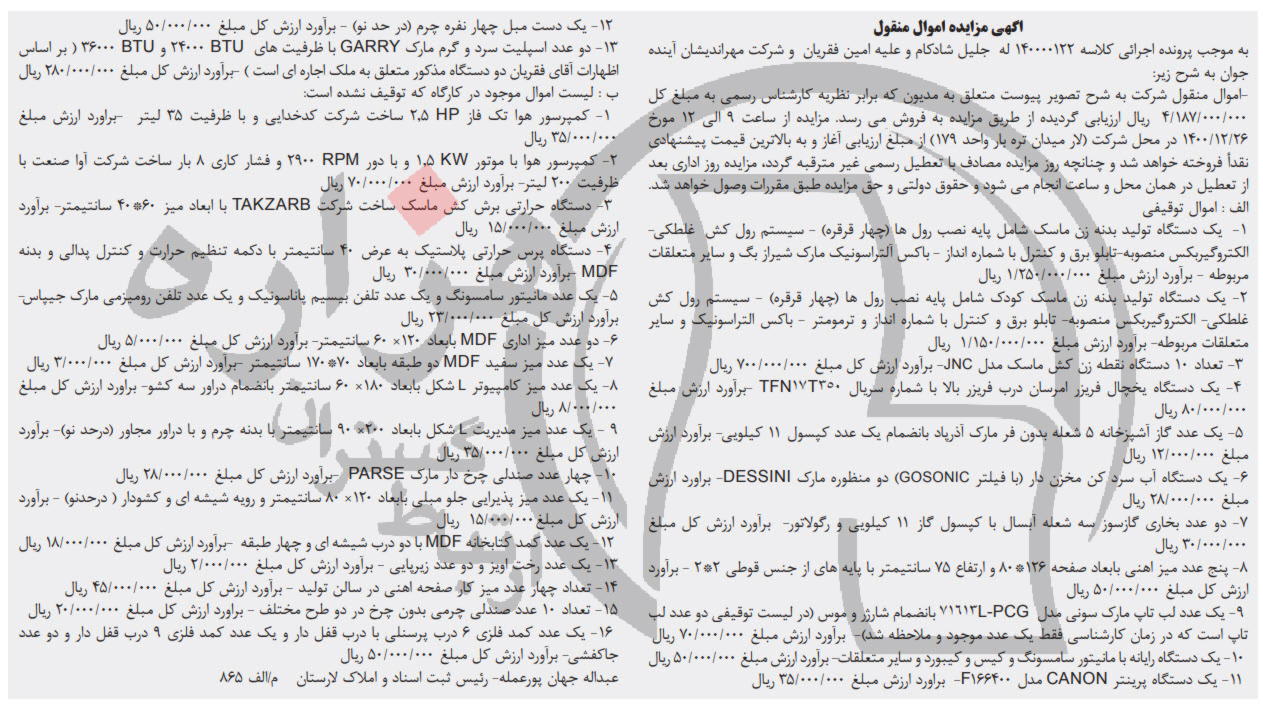 آگهی مزایده اموال منقول
به موجب پرونده اجرائی کلاسه ۱۴۰۰۰۰۱۲۲ له جلیل شادکام و علیه امین فقریان و شرکت مهراندیشان آینده
جوان به شرح زیر:
-اموال منقول شرکت به شرح تصویر پیوست متعلق به مدیون که برابر نظریه کارشناس رسمی به مبلغ کل
۴/۱۸۷/۰۰۰/۰۰۰ ریال ارزیابی گردیده از طریق مزایده به فروش می رسد. مزایده از ساعت ۹ الی ۱۲ مورخ
۱۴۰۰/۱۲/۲۶ در محل شرکت (لار میدان تره بار واحد ۱۷۹) از مبلغ ارزیابی آغاز و به بالاترین قیمت پیشنهادی
نقداً فروخته خواهد شد و چنانچه روز مزایده مصادف با تعطیل رسمی غیر مترقبه گردد، مزایده روز اداری بعد
از تعطیل در همان محل و ساعت انجام می شود و حقوق دولتی و حق مزایده طبق مقررات وصول خواهد شد.
الف : اموال توقیفی
۱- یک دستگاه تولید بدنه زن ماسک شامل پایه نصب رول ها (چهار قرقره) - سیستم رول کش غلطکی-
الکتروگیربکس منصوبه-تابلو برق و کنترل با شماره انداز - باکس آلتراسونیک مارک شیراز بگ و سایر متعلقات
مربوطه - برآورد ارزش مبلغ ۱/۲۵۰/۰۰۰/۰۰۰ ریال
۲- یک دستگاه تولید بدنه زن ماسک کودک شامل پایه نصب رول ها (چهار قرقره) - سیستم رول کش
غلطکی- الکتروگیربکس منصوبه- تابلو برق و کنترل با شماره انداز و ترمومتر - باکس التراسونیک و سایر
متعلقات مربوطه- برآورد ارزش مبلغ ۱/۱۵۰/۰۰۰/۰۰۰ ریال
۳- تعداد ۱۰ دستگاه نقطه زن کش ماسک مدل JNC- برآورد ارزش کل مبلغ ۷۰۰/۰۰۰/۰۰۰ ریال
۴- یک دستگاه یخچال فریزر امرسان درب فریزر بالا با شماره سریال TFN۱۷T۳۵۰ -برآورد ارزش مبلغ
۸۰/۰۰۰/۰۰۰ ریال
۵- یک عدد گاز آشپزخانه ۵ شعله بدون فر مارک آذرپاد بانضمام یک عدد کپسول ۱۱ کیلویی- برآورد ارزش
مبلغ ۱۲/۰۰۰/۰۰۰ ریال
۶- یک دستگاه آب سرد کن مخزن دار (با فیلتر GOSONIC) دو منظوره مارک DESSINI- براورد ارزش
مبلغ ۲۸/۰۰۰/۰۰۰ ریال
۷- دو عدد بخاری گازسوز سه شعله آبسال با کپسول گاز ۱۱ کیلویی و رگولاتور- برآورد ارزش کل مبلغ
۳۰/۰۰۰/۰۰۰ ریال
۸- پنج عدد میز اهنی بابعاد صفحه ۱۲۶*۸۰ و ارتفاع ۷۵ سانتیمتر با پایه های از جنس قوطی ۲*۲ - برآورد
ارزش کل مبلغ ۵۰/۰۰۰/۰۰۰ ریال
۹- یک عدد لب تاپ مارک سونی مدل ۷۱۶۱۳L-PCG بانضمام شارژر و موس (در لیست توقیفی دو عدد لب
تاپ است که در زمان کارشناسی فقط یک عدد موجود و ملاحظه شد)- برآورد ارزش مبلغ ۷۰/۰۰۰/۰۰۰ ریال
۱۰- یک دستگاه رایانه با مانیتور سامسونگ و کیس و کیبورد و سایر متعلقات- برآورد ارزش مبلغ ۵۰/۰۰۰/۰۰۰ ریال
۱۱- یک دستگاه پرینتر CANON مدل F۱۶۶۴۰۰- براورد ارزش مبلغ ۳۵/۰۰۰/۰۰۰ ریال
۱۲- یک دست مبل چهار نفره چرم (در حد نو) - برآورد ارزش کل مبلغ ۵۰/۰۰۰/۰۰۰ ریال
۱۳- دو عدد اسپلیت سرد و گرم مارک GARRY با ظرفیت های ۲۴۰۰۰ BTU و ۳۶۰۰۰ BTU ( بر اساس
اظهارات آقای فقریان دو دستگاه مذکور متعلق به ملک اجاره ای است ) -برآورد ارزش کل مبلغ ۲۸۰/۰۰۰/۰۰۰ ریال
ب : لیست اموال موجود در کارگاه که توقیف نشده است:
۱- کمپرسور هوا تک فاز ۲٫۵ HP ساخت شرکت کدخدایی و با ظرفیت ۳۵ لیتر -براورد ارزش مبلغ
۳۵/۰۰۰/۰۰۰ ریال
۲- کمپرسور هوا با موتور ۱٫۵ KW و با دور ۲۹۰۰ RPM و فشار کاری ۸ بار ساخت شرکت آوا صنعت با
ظرفیت ۲۰۰ لیتر- برآورد ارزش مبلغ ۷۰/۰۰۰/۰۰۰ ریال
۳- دستگاه حرارتی برش کش ماسک ساخت شرکت TAKZARB با ابعاد میز ۶۰*۴۰ سانتیمتر- برآورد
ارزش مبلغ ۱۵/۰۰۰/۰۰۰ ریال
۴- دستگاه پرس حرارتی پلاستیک به عرض ۴۰ سانتیمتر با دکمه تنظیم حرارت و کنترل پدالی و بدنه
MDF -برآورد ارزش مبلغ ۳۰/۰۰۰/۰۰۰ ریال
۵- یک عدد مانیتور سامسونگ و یک عدد تلفن بیسیم پاناسونیک و یک عدد تلفن رومیزمی مارک جیپاس-
برآورد ارزش کل مبلغ ۲۳/۰۰۰/۰۰۰ ریال
۶- دو عدد میز اداری MDF بابعاد ۱۲۰× ۶۰ سانتیمتر- برآورد ارزش کل مبلغ ۵/۰۰۰/۰۰۰ ریال
۷- یک عدد میز سفید MDF دو طبقه بابعاد ۷۰*۱۷۰ سانتیمتر -برآورد ارزش کل مبلغ ۳/۰۰۰/۰۰۰ ریال
۸- یک عدد میز کامپیوتر L شکل بابعاد ۱۸۰× ۶۰ سانتیمتر بانضمام دراور سه کشو- براورد ارزش کل مبلغ
۸/۰۰۰/۰۰۰ ریال
۹ - یک عدد میز مدیریت L شکل بابعاد ۲۰۰× ۹۰ سانتیمتر با بدنه چرم و با دراور مجاور (درحد نو)- برآورد
ارزش کل مبلغ ۳۵/۰۰۰/۰۰۰ ریال
۱۰- چهار عدد صندلی چرخ دار مارک PARSE -برآورد ارزش کل مبلغ ۲۸/۰۰۰/۰۰۰ ریال
۱۱- یک عدد میز پذیرایی جلو مبلی بابعاد ۱۲۰× ۸۰ سانتیمتر و رویه شیشه ای و کشودار ( درحدنو) - برآورد
ارزش کل مبلغ ۱۵/۰۰۰/۰۰۰ ریال
۱۲- یک عدد کمد کتابخانه MDF با دو درب شیشه ای و چهار طبقه -برآورد ارزش کل مبلغ ۱۸/۰۰۰/۰۰۰ ریال
۱۳- یک عدد رخت اویز و دو عدد زیرپایی - برآورد ارزش کل مبلغ ۲/۰۰۰/۰۰۰ ریال
۱۴- تعداد چهار عدد میز کار صفحه اهنی در سالن تولید - برآورد ارزش کل مبلغ ۴۵/۰۰۰/۰۰۰ ریال
۱۵- تعداد ۱۰ عدد صندلی چرمی بدون چرخ در دو طرح مختلف - براورد ارزش کل مبلغ ۲۰/۰۰۰/۰۰۰ ریال
۱۶- یک عدد کمد فلزی ۶ درب پرسنلی با درب قفل دار و یک عدد کمد فلزی ۹ درب قفل دار و دو عدد
جاکفشی- برآورد ارزش کل مبلغ ۵۰/۰۰۰/۰۰۰ ریال
عبداله جهان پورعمله- رئیس ثبت اسناد و املاک لارستان م/الف ۸۶۵
هزاره
ارتباط
گستران